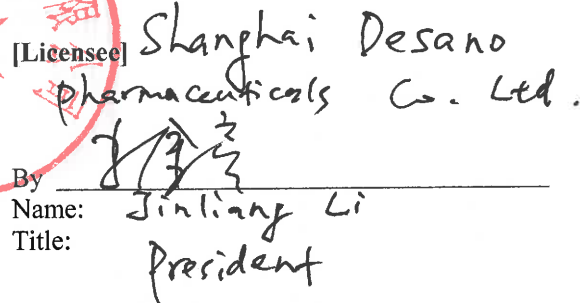 [Licensee] Shanghai Desano
Pharmaceuticals Co. Ltd.
By
Name: Jinliang Li
Title: President